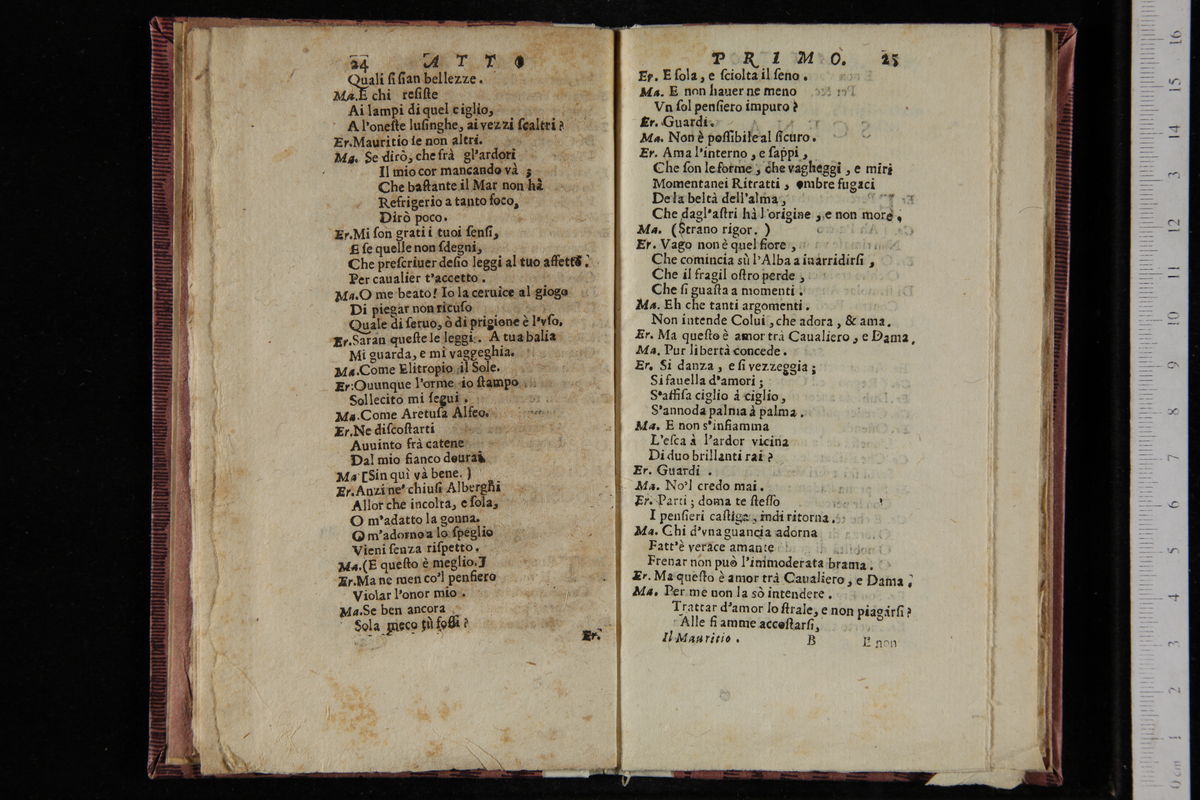 24 ATTO
Quali ſi ſian bellezze.
Ma.E chi reſiſte
Ai lampi di quel ciglio,
A l'oneſte luſinghe, ai vezzi ſcaltri?
Er.Mauritio ſe non altri.
Ma. Se dirò, che frà gl'ardori
Il mio cor mancando và ;
Che baſtante il Mar non hà
Refrigerio a tanto foco,
Dirò poco.
Er.Mi ſon grati i tuoi ſenſi,
E ſe quelle non ſdegni,
Che preſcriuer deſio leggi al tuo affetto.
Per caualier t'accetto.
Ma.O me beato! Io la ceruice al giogo
Di piegar non ricuſo
Quale di ſeruo, ò di prigione è l'vſo.
Er.Saran queſte le leggi. A tua balia
Mi guarda, e mi vaggeghia.
Ma.Come Elitropio il Sole.
Er:Ouunque l'orme io ſtampo
Sollecito mi ſegui.
Ma.Come Aretuſa Alfeo.
Er.Ne diſcoſtarti
Auuinto frà catene
Dal mio fianco dourai.
Ma [Sin quì và bene. )
Er.Anzi ne' chiuſi Alberghi
Allor che incolta, e ſola,
O m'adatto la gonna.
O m'adorno a lo ſpeglio
Vieni ſenza riſpetto.
Ma.(E queſto è meglio.]
Er.Ma ne men co'l penſiero
Violar l'onor mio.
Ma.Se ben ancora
Sola meco tù foſſi?
Er.
PRIMO. 25
Er. E ſola, e ſciolta il ſeno.
Ma. E non hauer ne meno
Vn ſol penſiero impuro?
Er. Guardi.
Ma. Non è poſſibile al ſicuro.
Er. Ama l'interno, e ſappi,
Che ſon le forme, che vagheggi, e miri
Momentanei Ritratti, ombre fugaci
De la beltà dell'alma,
Che dagl'aſtri hà l'origine, e non more.
Ma. (Strano rigor. )
Er. Vago non è quel fiore,
Che comincia sù l'Alba a inarridirſi,
Che il fragil oſtro perde,
Che ſi guaſta a momenti.
Ma. Eh che tanti argomenti.
Non intende Colui, che adora, & ama.
Er. Ma queſto è amor trà Caualiero, e Dama.
Ma. Pur libertà concede.
Er. Si danza, e ſi vezzeggia;
Si fauella d'amori;
S'affiſa ciglio à ciglio,
S'annoda palma à palma.
Ma. E non s'infiamma
L'eſca à l'ardor vicina
Di duo brillanti rai?
Er. Guardi .
Ma. No'l credo mai.
Er. Parti; doma te ſteſſo
I penſieri caſtiga, indi ritorna.
Ma. Chi d'vna guancia adorna
Fatt'è verace amante
Frenar non può l'inimoderata brama.
Er. Ma queſto è amor trà Caualiero, e Dama.
Ma. Per me non la sò intendere.
Trattar d'amor lo ſtrale, e non piagarſi?
Alle fiamme accoſtarſi,
Il Mauritio. B E non